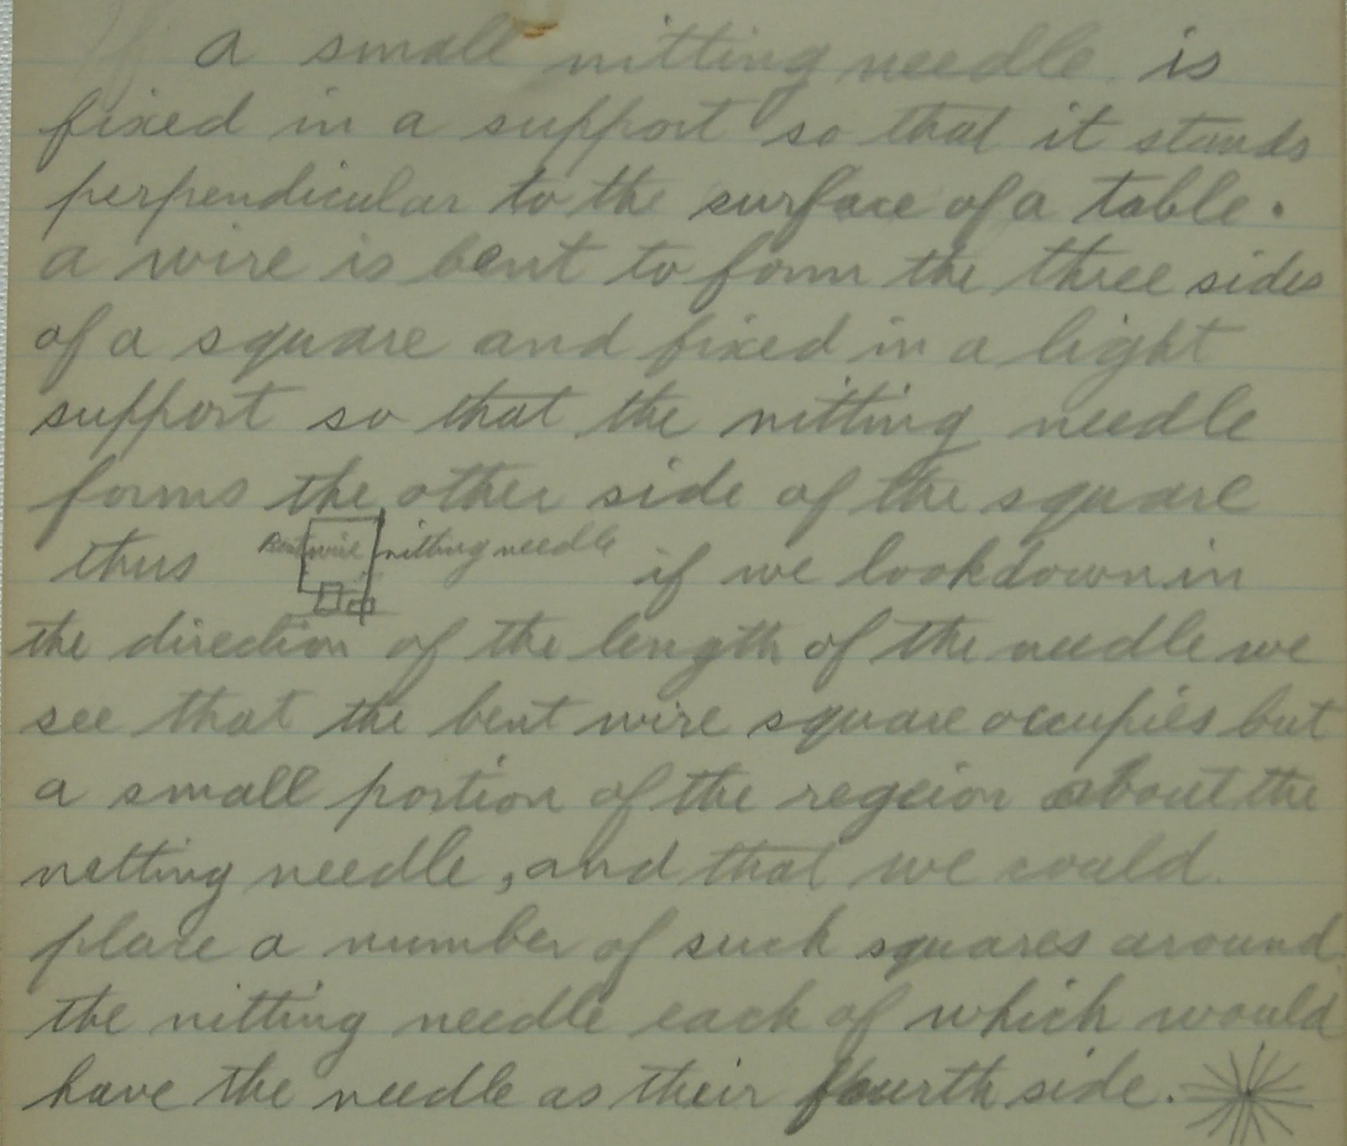 If a small nitting needle is
fixed in a support so that it stands
perpendicular to the surface of a table.
a wire is bent to form the three sides
of a square and fixed in a light
support so that the nitting needle
forms the other side of the square
thus Bent wire nitting needle if we look down in
the direction of the length of the needle we
see that the bent wire square occupies but
a small portion of the regeion about the
nitting needle, and that we could
place a number of such squares around
the nitting needle each of which would
have the needle as their fourth side.